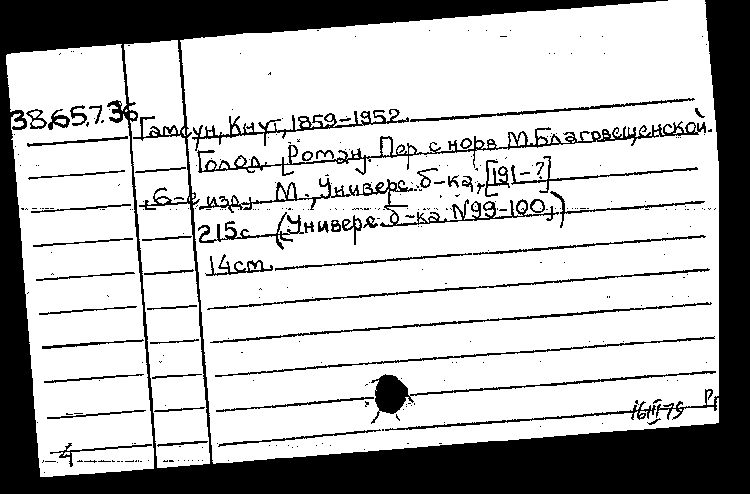 38.657.36
Гамсун, Кнут, 1859-1952.
Голод. [Роман]. Пер. с норв М.Благовещенской.
6-е изд. М., Универс. б-ка, [191-?]
215с (Универс. б-ка. N99-100.)
14cm.
16III79
4